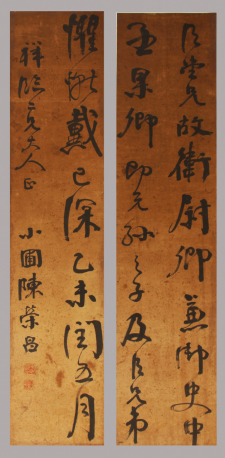 臣堂兄故衛尉卿兼御史中
丞杲卿即元孫之子及臣兄弟
懼慚戴已深乙未閏五月
祥臨二兄大人正
小圃陳榮昌